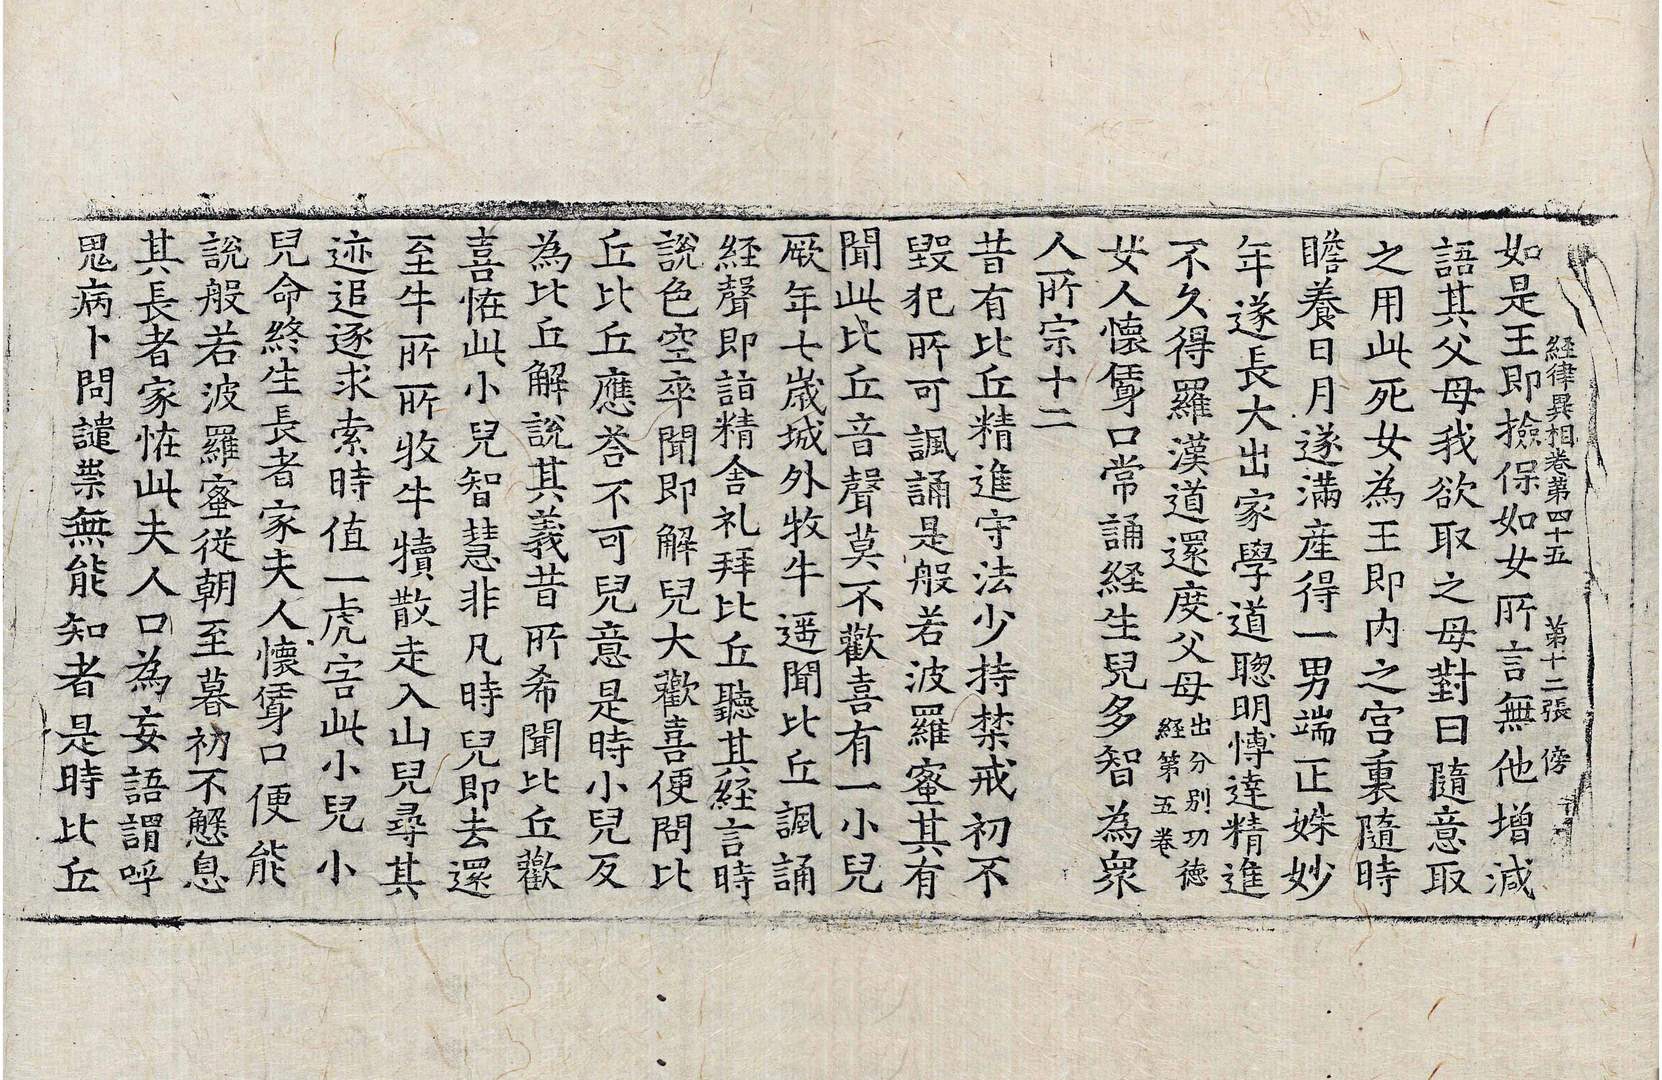 経律異相卷第四十五 第十二張 傍
如是王即撿保如女所言無他增減
語其父母我欲取之母對曰隨意取
之用此死女為王即内之宫裏隨時
瞻養日月遂滿産得一男端正姝妙
年遂長大出家學道聰明博達精進
不久得羅漢道還度父母出分別功德経第五卷
女人懷㝃身口常誦経生兒多智為衆
人所宗十二
昔有比丘精進守法少持禁戒初不
毀犯所可諷誦是般若波羅蜜其有
聞此比丘音聲莫不歡喜有一小兒
厥年七歲城外牧牛遥聞比丘諷誦
経聲即詣精舍礼拜比丘聽其経言時
說色空卒聞即解兒大歡喜便問比
丘比丘應荅不可兒意是時小兒反
為比丘解說其義昔所希聞比丘歡
喜恠此小兒智慧非凡時兒即去還
至牛所所牧牛犢散走入山兒尋其
迹追逐求索時值一虎害此小兒小
兒命終生長者家夫人懷㝃身口便能
說般若波羅蜜從朝至暮初不懈息
其長者家恠此夫人口為妄語謂呼
鬼病卜問譴祟無能知者是時比丘